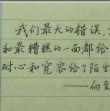 我们最大的错误,
和最糟糕的一面都给
耐心和宽容给了陌生
——向